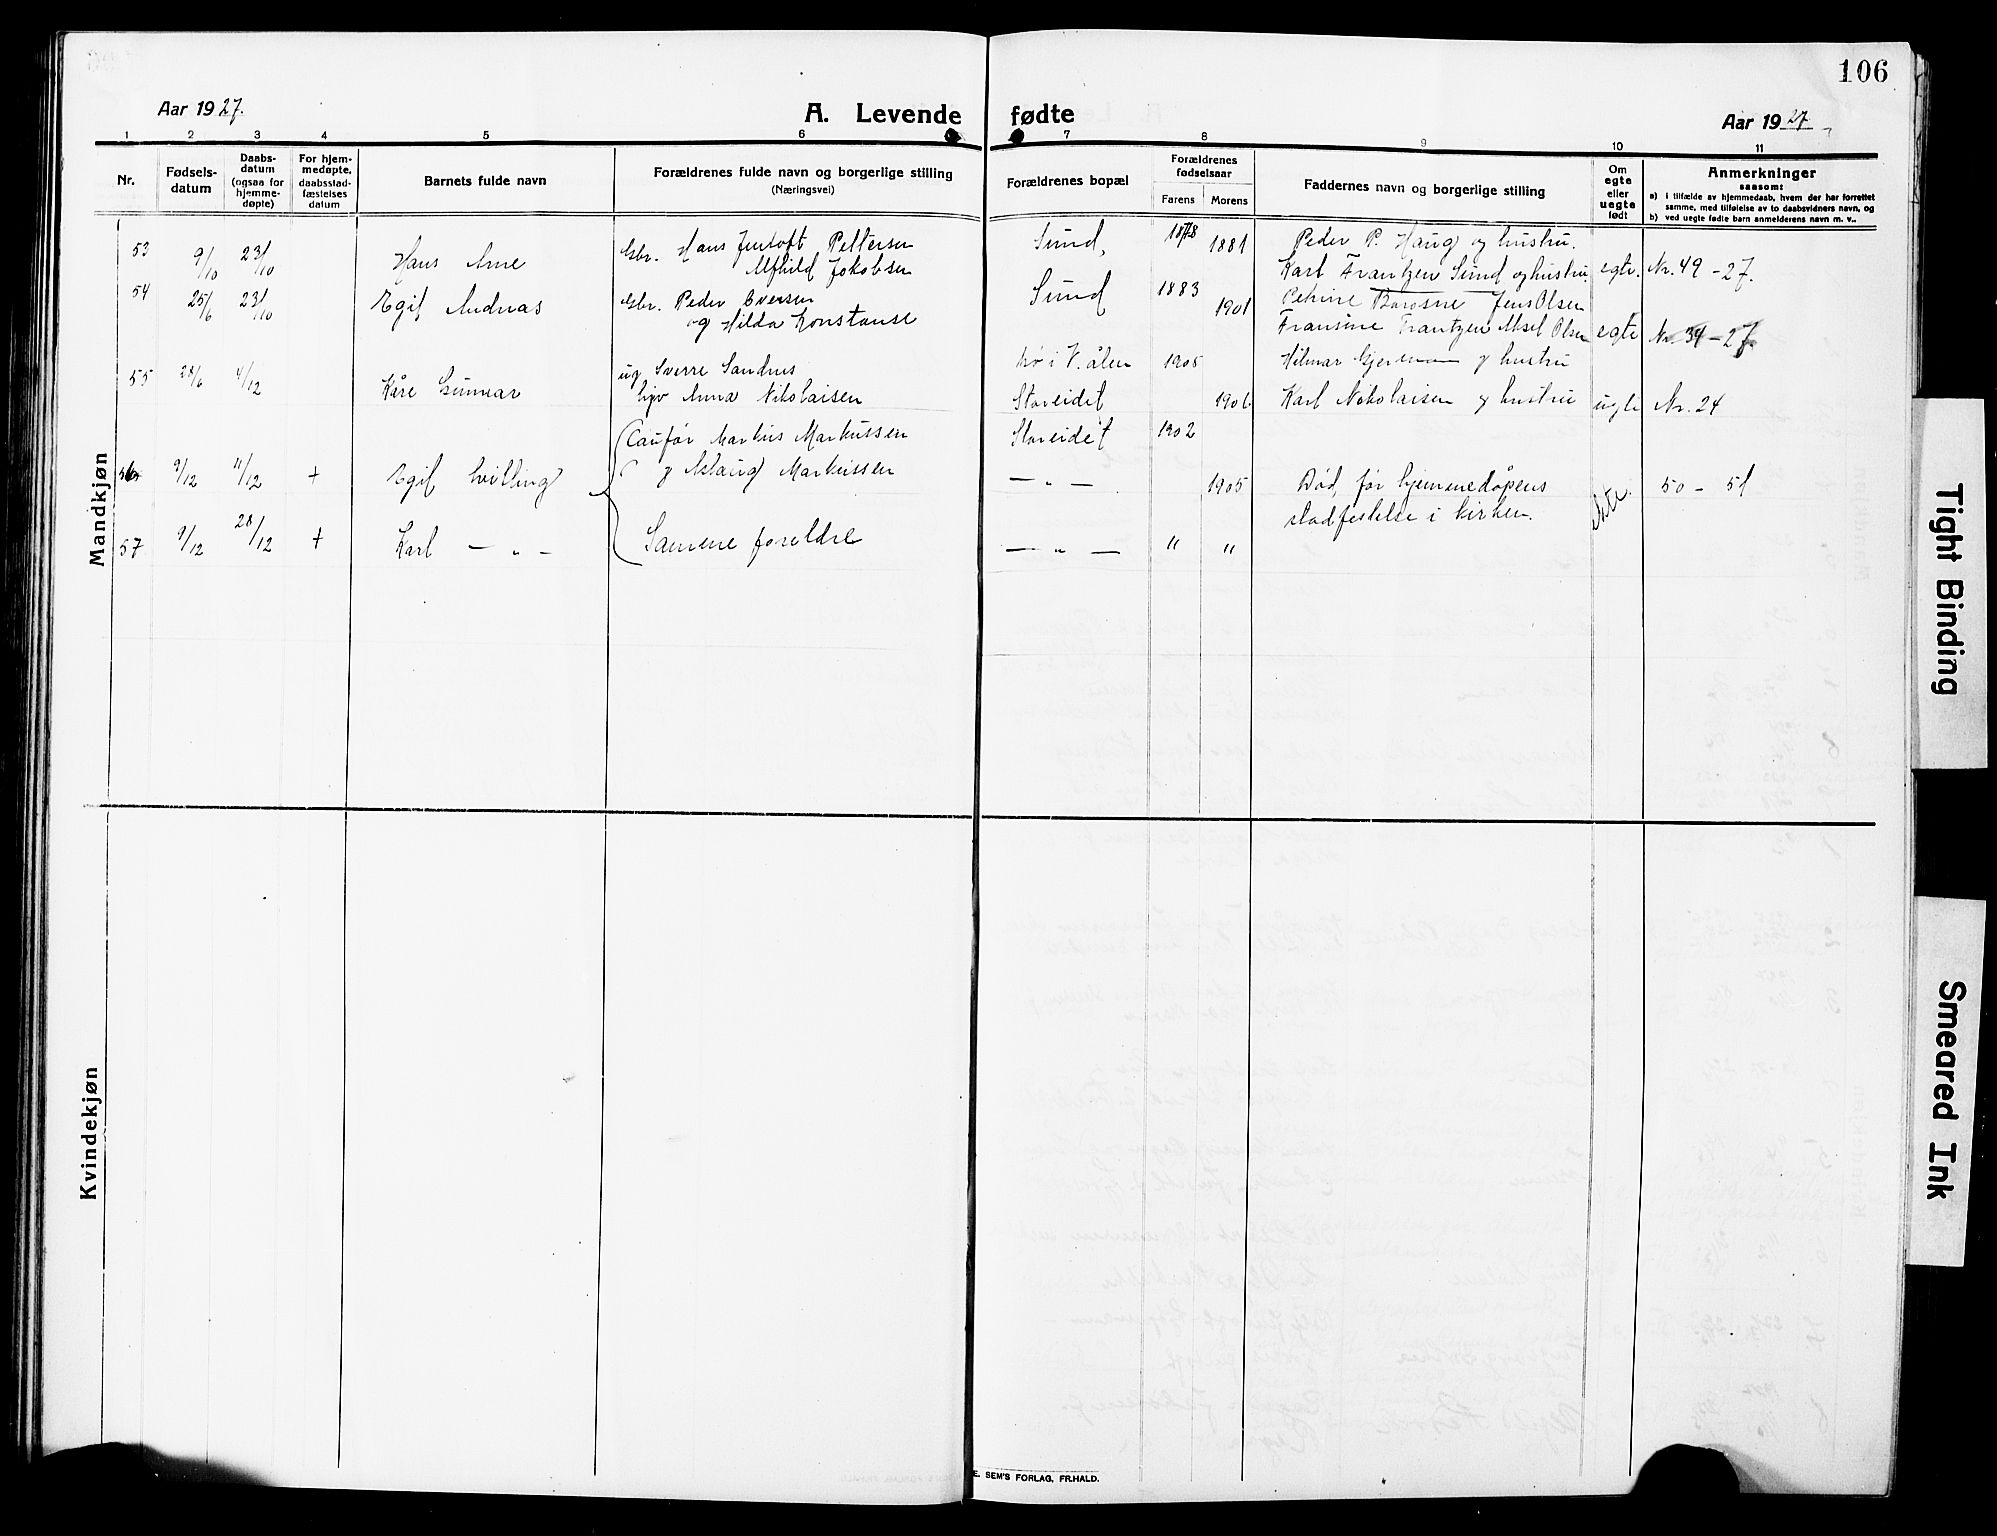 106
Aar 1927.
A. Levende fødte
Aar 1927
1 2 3 4 5 6 7 8 9 10 11
Nr.
Fødsels-
datum
Daabs-
datum
(ogsaa for
hjemme-
døpte)
For hjem-
medøpte,
daabsstad-
fæstelses
datum
Barnets fulde navn
Forældrenes fulde navn og borgerlige stilling
(Næringsvei)
Forældrenes bopæl
Forældrenes
fødselsaar
Farens Morens
Faddernes navn og borgerlige stilling
Om
egte
eller
uegte
født
Anmerkninger
saasom:
a) i tilfælde av hjemmedaab, hvem der har forrettet
samme, med tilføielse av to daabsvidners navn, og
b) ved uegte fødte barn anmelderens navn m. v..
Mandkjøn
53 9/10 23/10 Hans Arne Gbr. Hans Jentoft Pettersen
Alfhild Jakobsen
Sund, 1878 1881 Peder P. Haug og hustru.
Karl Frantzen Sund og hustru. egte. Nr. 49 - 27.
54 25/6 23/10 Egil Andreas Gbr. Peder Eversen
og Hilda Konstanse
Sund 1883 1901 Petrine Jens Olsen
Fransine Frantzen Aksel Olsen egte Nr. 34 - 27.
55 28/6 4/12 Kåre Gunnar ug Sverre Sandnes
Anna Nikolaisen
1905 Hilmar og hustru
Storeidet 1906 Karl Nikolaisen og hustru Nr. 24
56 9/12 11/12 + Egil tvilling Markus Markussen
og Aslaug Markussen
Storeidet 1902
— " — 1905 Død, før hjemmedåpens
stadfestelse i kirken. ekte. 50 - 51
57 9/12 28/12 + Karl — " — Samme foreldre
— " — " "
Kvindekjøn
E. SEM'S FORLAG, FR.HALD.
Tight Binding
Smeared Ink